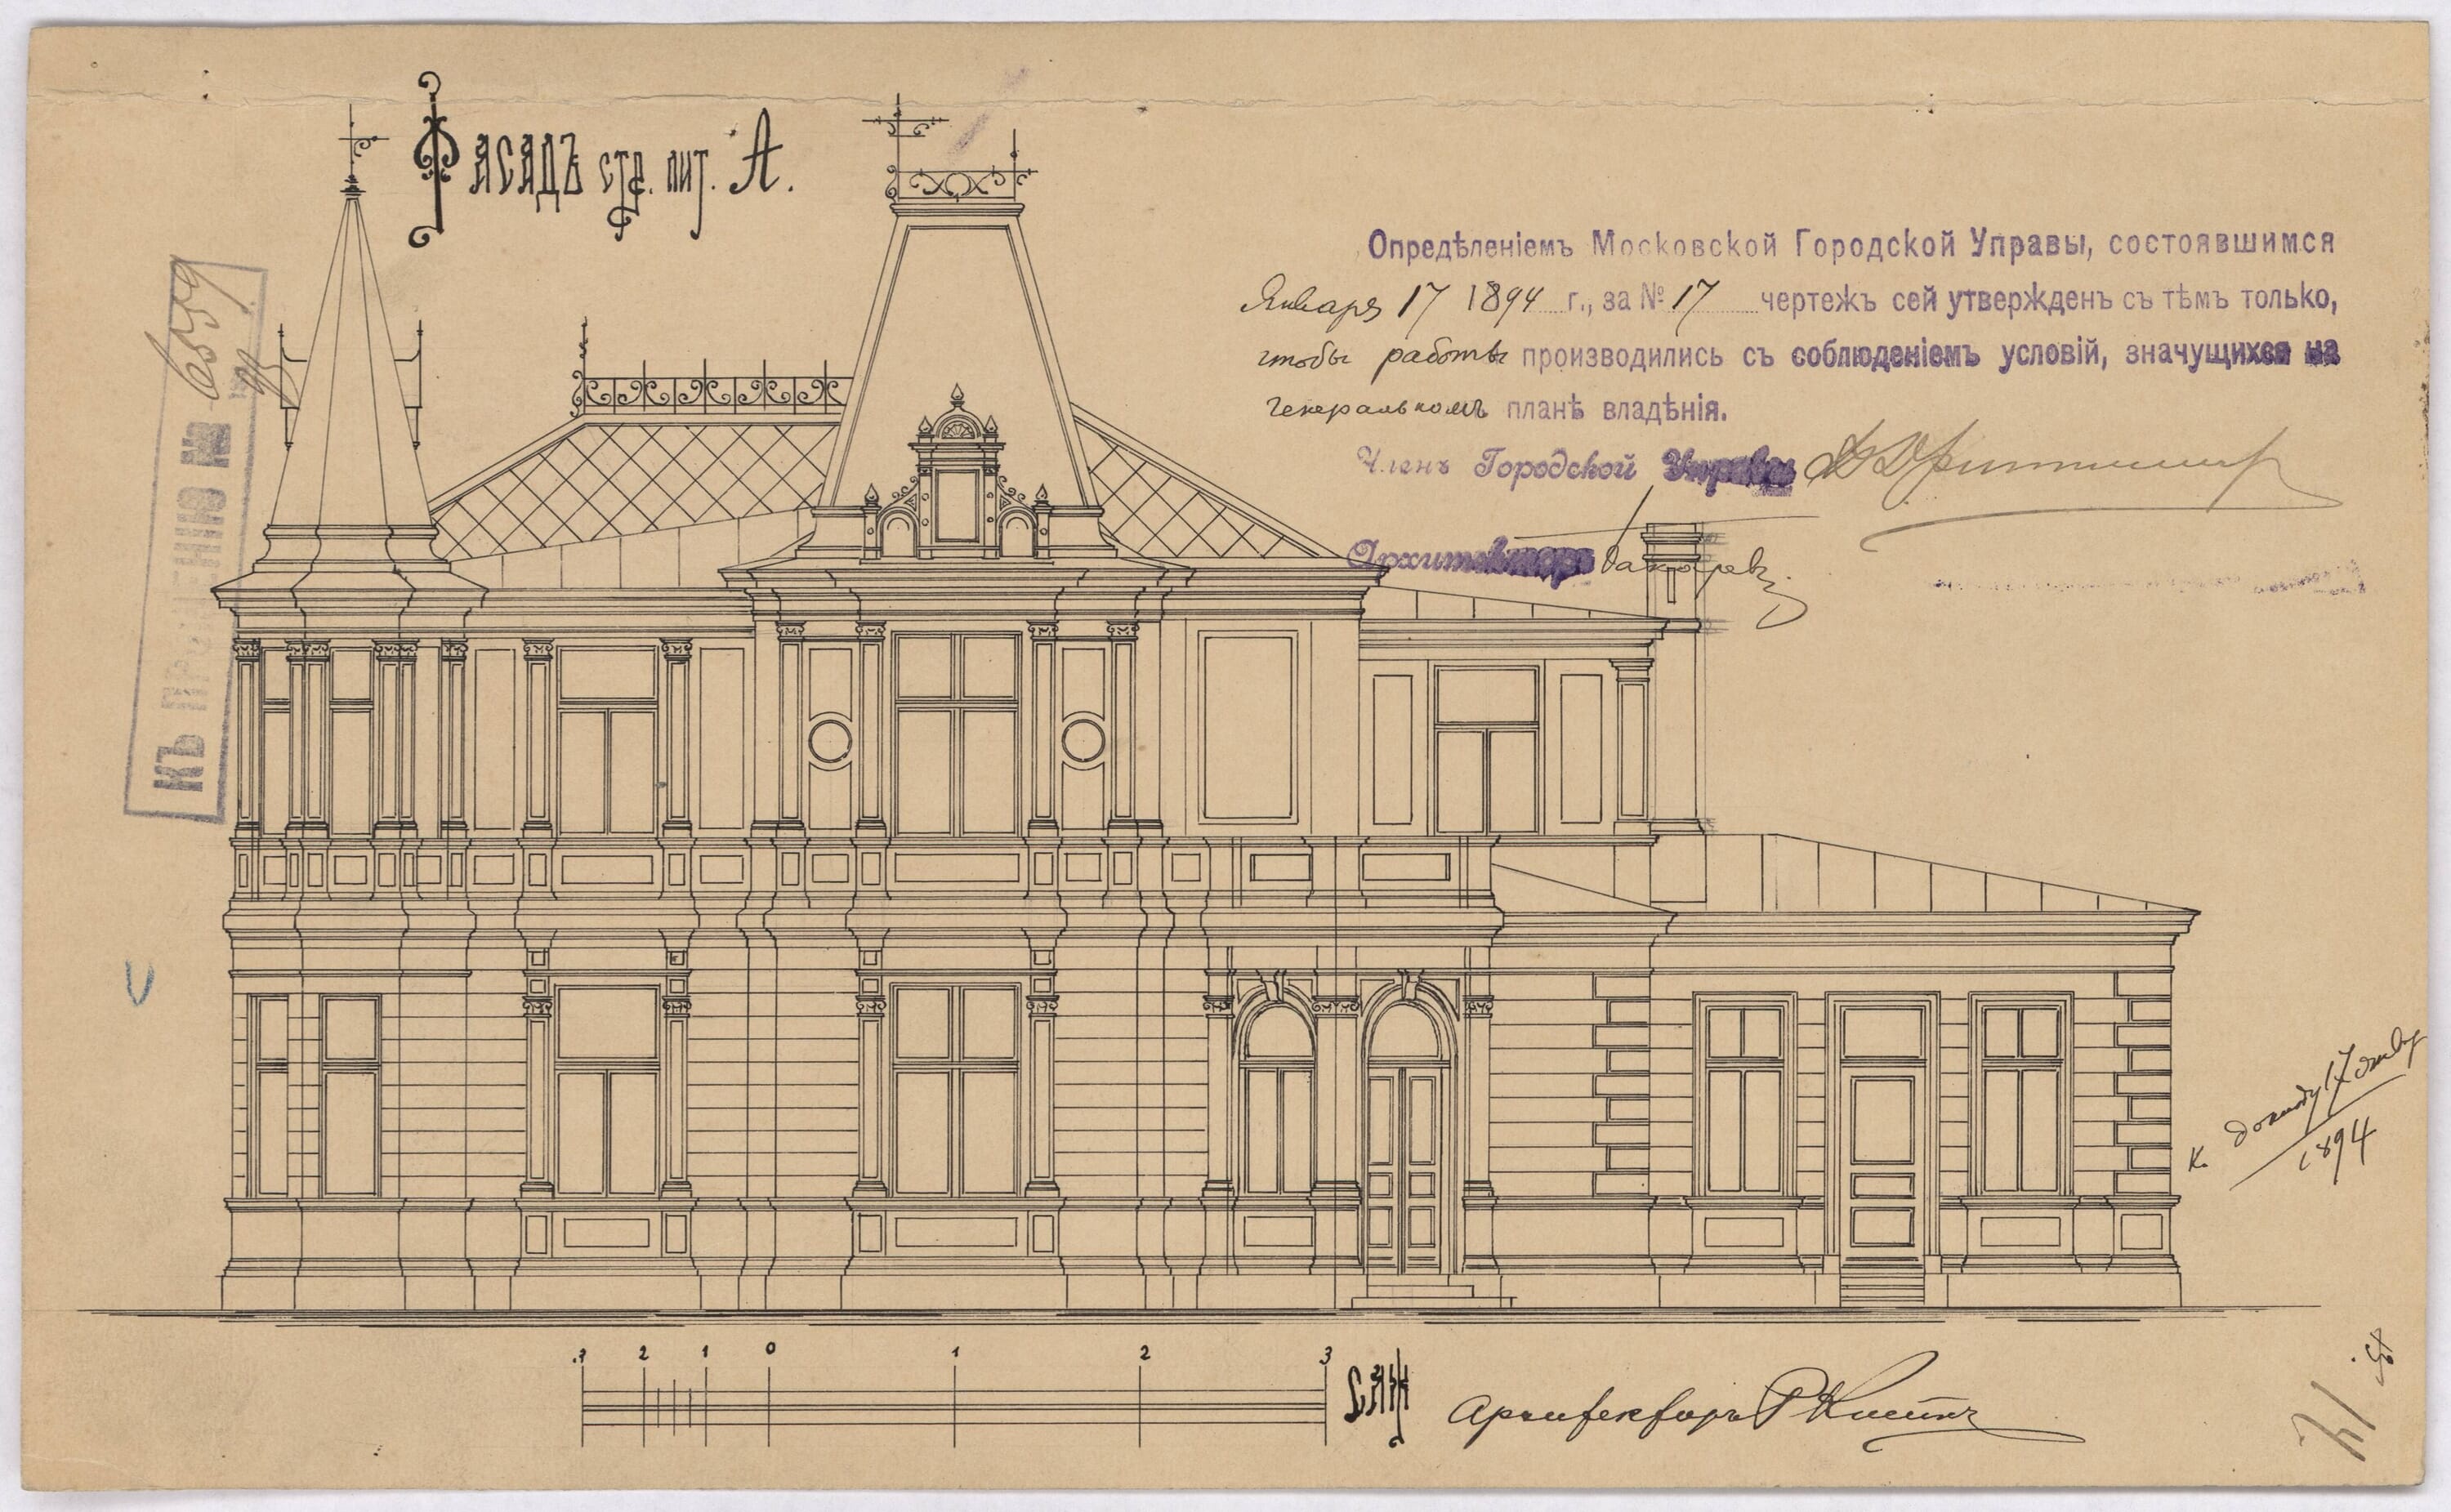 Фасадъ стр. лит. А.
Опредѣленіемъ Московской Городской Управы, состоявшимся
Января 17 1894 г., за № 17 чертежъ сей утвержденъ съ тѣмъ только,
чтобы работы производились съ соблюденіемъ условій, значущихся на
Генеральномъ планѣ владѣнія.
Членъ Городской Управы
Архитекторъ
КЪ № 6559
93
к. докладу 17 янв
1894
3 2 1 0 1 2 3 САЖ
Архитекторъ Р Клейнъ